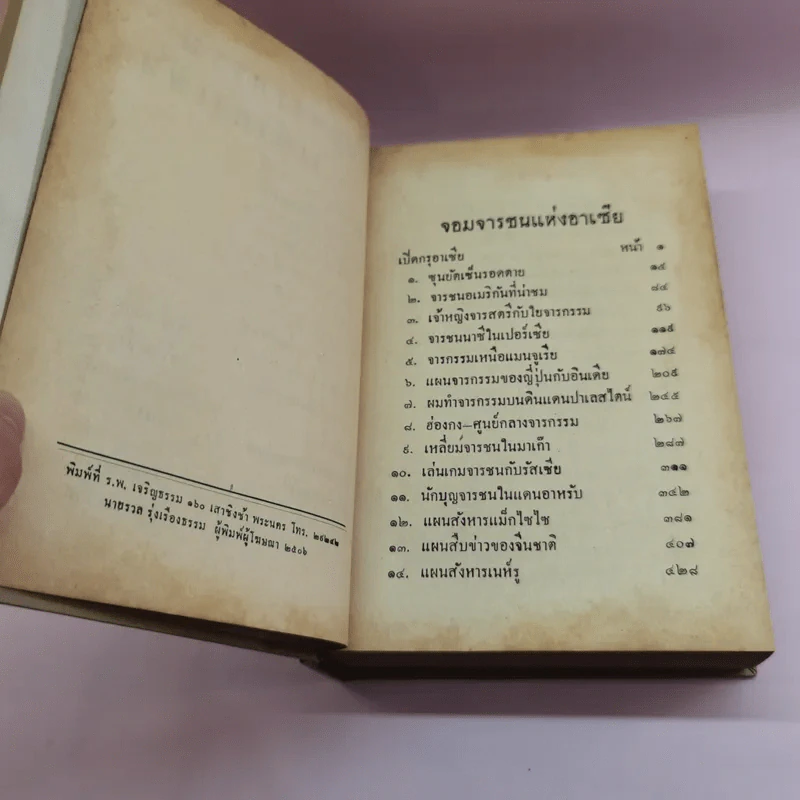 พิมพ์ที่ ร.พ. เจริญธรรม ๑๖๐ เสาชิงช้า พระนคร โทร. ๒๑๒๔๒
นายรวล รุ่งเรืองธรรม ผู้พิมพ์ผู้โฆษณา ๒๕๐๖
จอมจารชนแห่งอาเซีย
เปิดกรุอาเซีย หน้า ๑
๑. ซุนยัดเซ็นรอดตาย ๑๔
๒. จารชนอเมริกันที่น่าชม ๔๔
๓. เจ้าหญิงจารสตรีกับใยจารกรรม ๕๖
๔. จารชนนาซีในเปอร์เซีย ๑๑๕
๕. จารกรรมเหนือแมนจูเรีย ๑๗๔
๖. แผนจารกรรมของญี่ปุ่นกับอินเดีย ๒๐๕
๗. ผมทำจารกรรมบนดินแดนปาเลสไตน์ ๒๔๕
๘. ฮ่องกง–ศูนย์กลางจารกรรม ๒๖๗
๙. เหลี่ยมจารชนในมาเก๊า ๒๘๗
๑๐. เล่นเกมจารชนกับรัสเซีย ๓๑๑
๑๑. นักบุญจารชนในแดนอาหรับ ๓๔๒
๑๒. แผนสังหารแม็กไซไซ ๓๘๑
๑๓. แผนสืบข่าวของจีนชาติ ๔๐๗
๑๔. แผนสังหารเนห์รู ๔๒๘